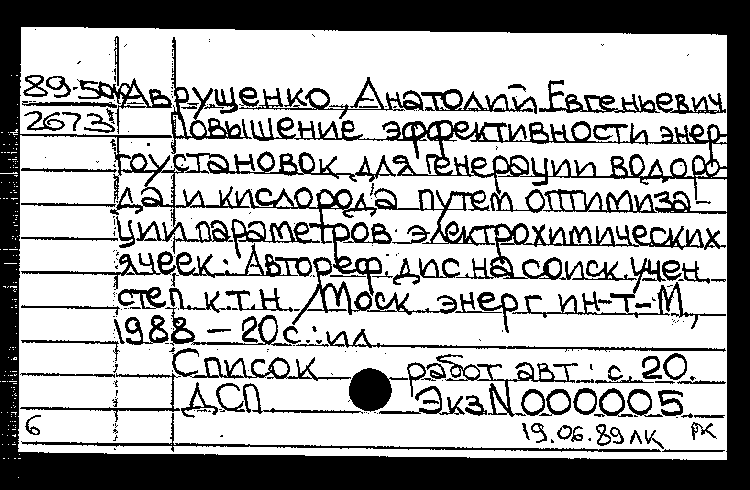 89-50 Аврущенко, Анатолий Евгеньевич
2673 Повышение эффективности энер-
гоустановок для генерации водоро-
да и кислорода путем оптимиза-
ции параметров электрохимических
ячеек: Автореф. дис. на соиск. учен.
степ. к.т.н. /Моск. энерг. ин-т.-М.,
1988 – 20с.:ил.
Список работ авт.: с. 20.
ДСП. Экз.N 000005
6 19.06.89 ЛК РЖ